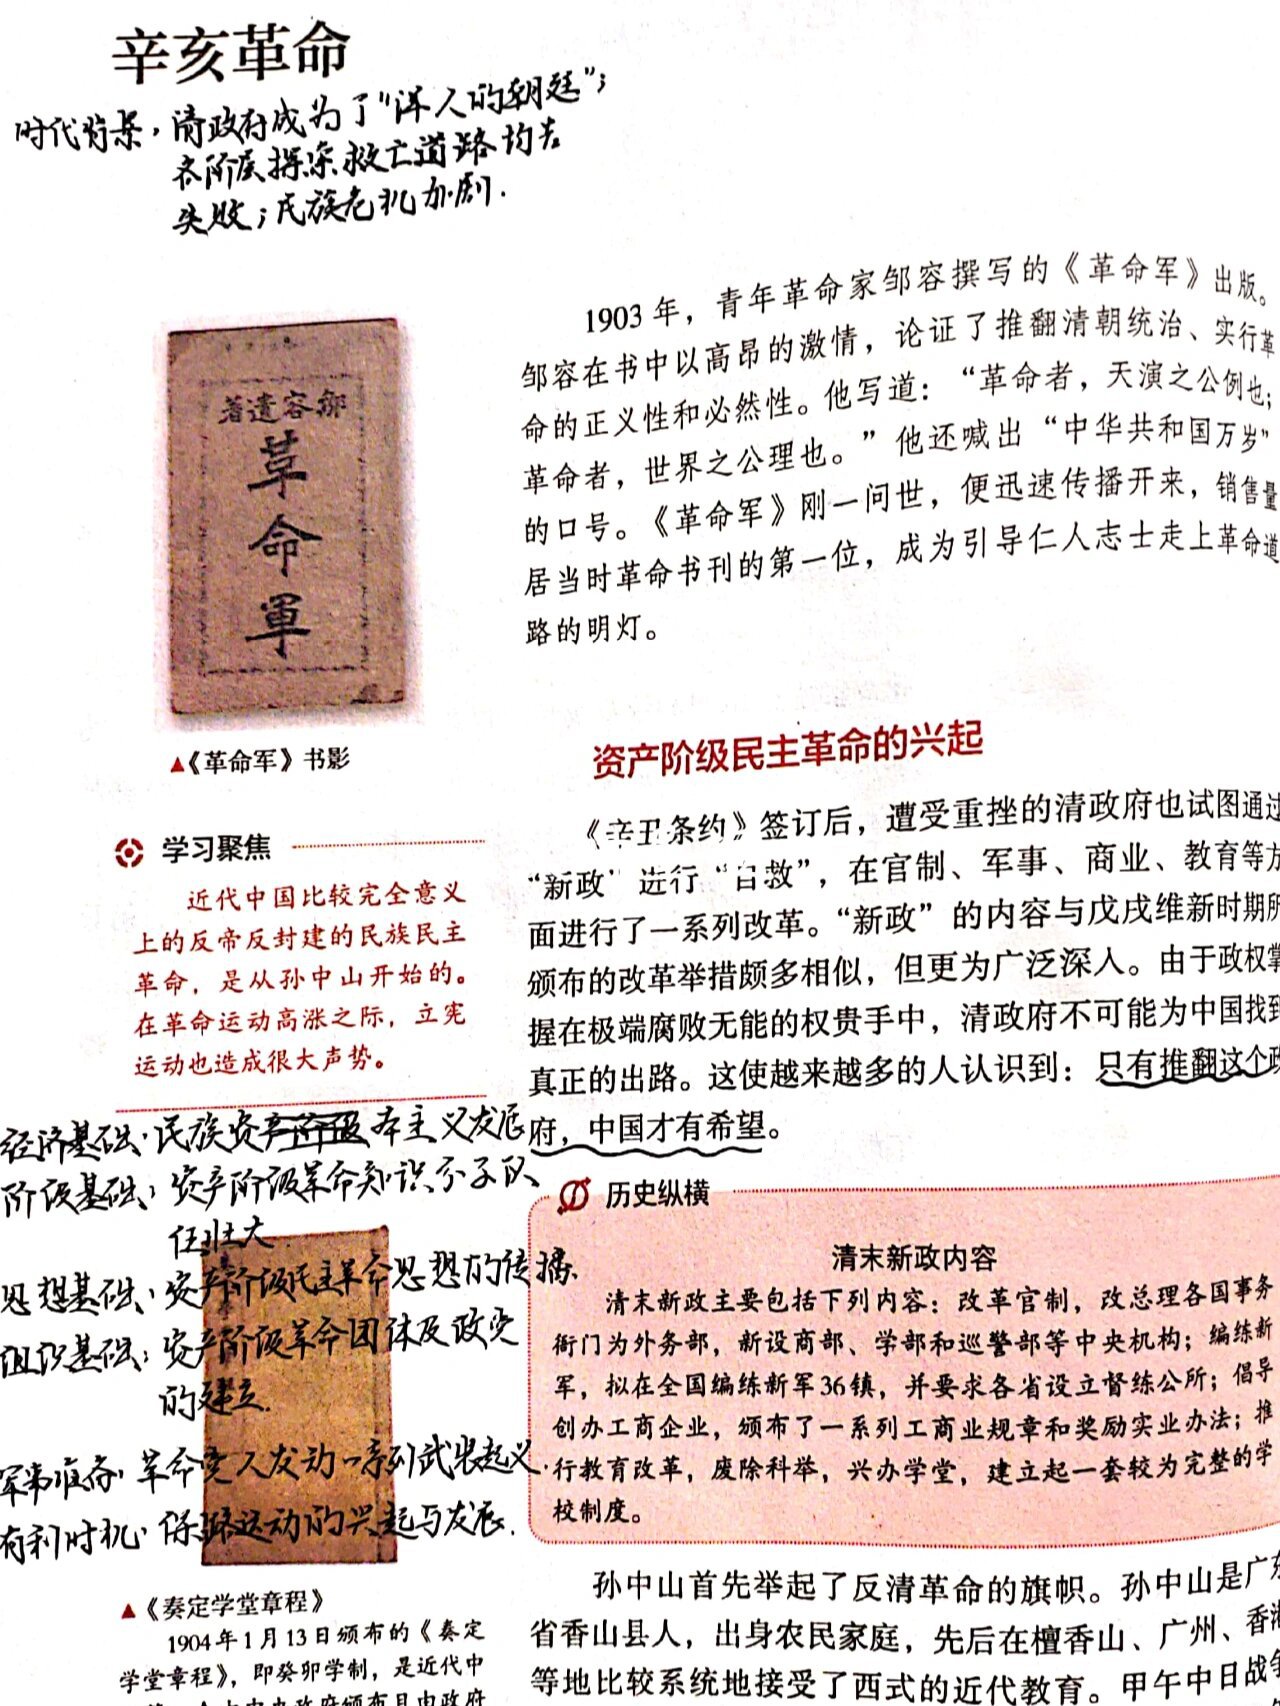 辛亥革命
时代背景：清政府成为了"洋人的朝廷"；
各阶层探索救亡道路均告
失败；民族危机加剧.
1903年，青年革命家邹容撰写的《革命军》出版。
邹容在书中以高昂的激情，论证了推翻清朝统治、实行革
命的正义性和必然性。他写道：“革命者，天演之公例也；
革命者，世界之公理也。”他还喊出“中华共和国万岁”
的口号。《革命军》刚一问世，便迅速传播开来，销售量
居当时革命书刊的第一位，成为引导仁人志士走上革命道
路的明灯。
著遗容鄒
革
命
軍
▲《革命军》书影
学习聚焦
近代中国比较完全意义
上的反帝反封建的民族民主
革命，是从孙中山开始的。
在革命运动高涨之际，立宪
运动也造成很大声势。
资产阶级民主革命的兴起
《辛丑条约》签订后，遭受重挫的清政府也试图通过
“新政”进行“自救”，在官制、军事、商业、教育等方
面进行了一系列改革。“新政”的内容与戊戌维新时期所
颁布的改革举措颇多相似，但更为广泛深入。由于政权掌
握在极端腐败无能的权贵手中，清政府不可能为中国找到
真正的出路。这使越来越多的人认识到：只有推翻这个政
府，中国才有希望。
经济基础：民族资产阶级本主义发展
阶级基础：资产阶级革命知识分子队
伍壮大.
思想基础：资产阶级民主革命思想的传播.
组织基础：资产阶级革命团体及政党
的建立.
军事准备：革命党人发动一系列武装起义.
有利时机：保路运动的兴起与发展.
历史纵横
清末新政内容
清末新政主要包括下列内容：改革官制，改总理各国事务
衙门为外务部，新设商部、学部和巡警部等中央机构；编练新
军，拟在全国编练新军36镇，并要求各省设立督练公所；倡导
创办工商企业，颁布了一系列工商业规章和奖励实业办法；推
行教育改革，废除科举，兴办学堂，建立起一套较为完整的学
校制度。
▲《奏定学堂章程》
1904年1月13日颁布的《奏定
学堂章程》，即癸卯学制，是近代中
孙中山首先举起了反清革命的旗帜。孙中山是广东
省香山县人，出身农民家庭，先后在檀香山、广州、香港
等地比较系统地接受了西式的近代教育。甲午中日战争